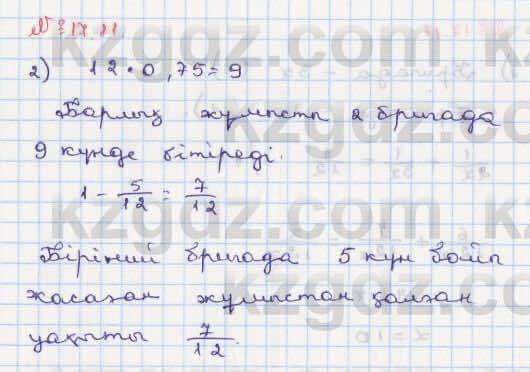 № 17.11
2) 12 · 0,75 = 9
Барлық жұмысты 2 бригада
9 күнде бітіреді.
1 - 5/12 = 7/12
Бірінші бригада 5 күн бойы
жасаған жұмыстан қалған
уақыты 7/12.
kzgdz.com